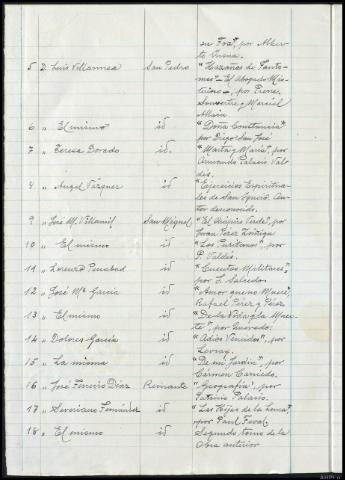 en Foz", por Alber-
to Insua.
5 D. Luis Villamea San Pedro "Hazañas de Fanto-
mas" - El Abogado Mis-
terioso -, por Pierre
Souvestre y Marcial
Allain
6 " El mismo id "Doña Constancia"
por Diego San José
7 " Teresa Dorado id. "Marta y María", por
Armando Palacio Val-
dés.
8 " Angel Vázquez id "Ejercicios Espiritua-
les de San Ignacio. Au-
tor desconocido.
9 " José M. Villamil San Miguel "El Chápiro Verde", por
Juan Pérez Zúñiga
10 " El mismo id "Los Puritanos", por
P. Valdés.
11 " Lorenzo Penabad id "Cuentos Militares",
por J. Salcedo.
12 " José Mª García id "Amor
Rafael Pérez y Pérez
13 " El mismo id "De la Vida y la Muer-
te", por Quevedo.
14 " Dolores García id "Adiós Venados", por
15 " La misma id "De mi Jardín", por
Carmen
16 " José Ferreiro Díaz Reinante "Geografía", por
Patricio Palacio.
17 " Severiano Fernández id "Las Hijas de la Luna",
por Paul Feval
18 " El mismo id Segundo tomo de la
Obra anterior